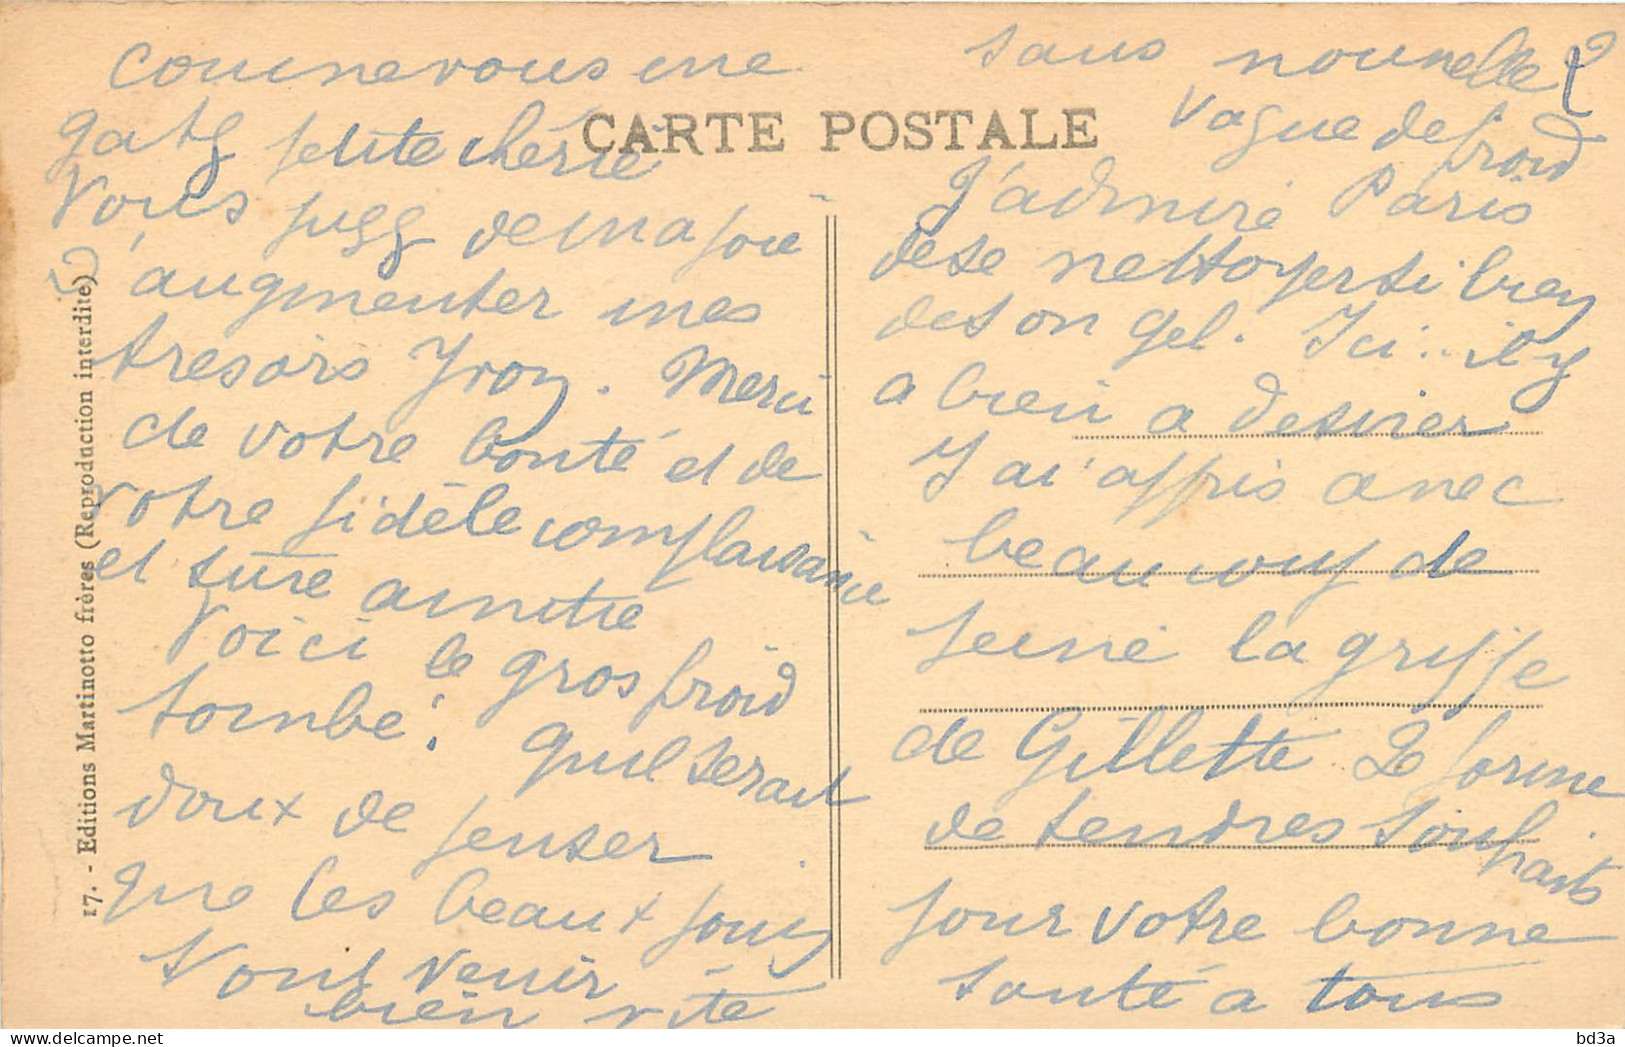 CARTE POSTALE
17. - Editions Martinotto frères (Reproduction interdite)
comme vous me
gatez petite chérie
Vous jugez de ma joie
d'augmenter mes
tresors Yvon. Merci
de votre bonté et de
votre fidèle complaisance
et sûre amitié
Voici le gros froid
tombé! qu'il serait
doux de penser
que les beaux jours
vont venir
bien vite
sans nouvelle
vague de froid
J'admire Paris
de se nettoyer si bien
de son gel. Ici.. il y
a bien a desirer
J'ai appris avec
beaucoup de
peine la griffe
de Gillette Je forme
de tendres souhaits
pour votre bonne
santé à tous
bd3a